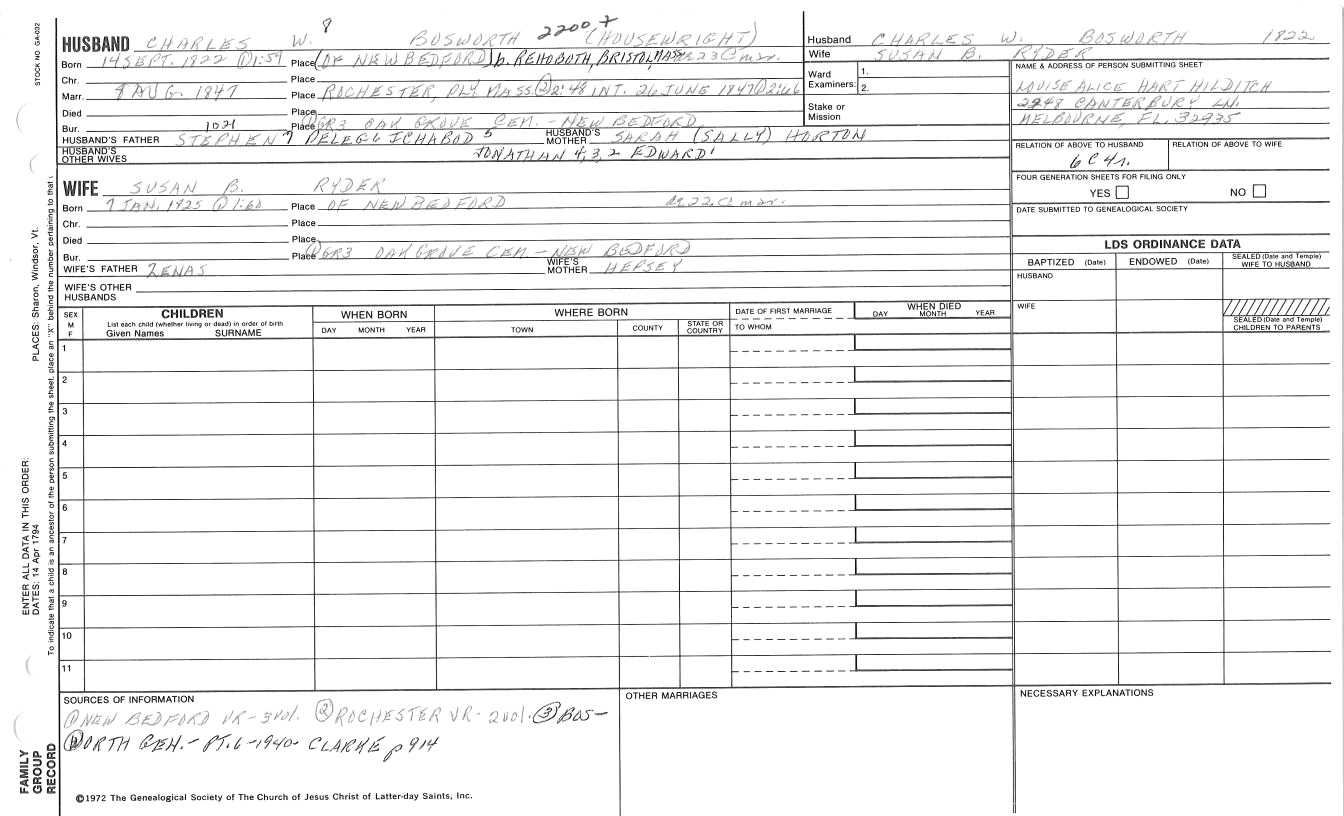 8
2200+
HUSBAND CHARLES W. BOSWORTH (HOUSEWRIGHT)
Born 14 SEPT. 1822 @1:59 Place (OF NEW BEDFORD) b. REHOBOTH, BRISTOL, MASS
Chr. Place
Marr. 8 AUG. 1847 Place ROCHESTER, PLY. MASS. ② 2:48 INT. 26 JUNE 1847 @2:66
Died Place
Bur. Place ① GR3 OAK GROVE CEM. - NEW BEDFORD
1021
HUSBAND'S FATHER STEPHEN 7 PELEG 6 ICHABOD 5 HUSBAND'S MOTHER SARAH (SALLY) HORTON
HUSBAND'S OTHER WIVES JONATHAN 4, 3, 2 EDWARD 1
WIFE SUSAN B. RYDER
Born 7 JAN. 1825 @1:60 Place OF NEW BEDFORD ae 22. C mar.
Chr. Place
Died Place
Bur. Place ① GR3 OAK GROVE CEM. - NEW BEDFORD
WIFE'S FATHER ZENAS WIFE'S MOTHER HEPSEY
WIFE'S OTHER HUSBANDS
Husband CHARLES W. BOSWORTH 1822
Wife SUSAN B. RYDER
Ward Examiners: 1.
2.
Stake or Mission
NAME & ADDRESS OF PERSON SUBMITTING SHEET
LOUISE ALICE HART HILDITCH
2248 CANTERBURY LN.
MELBOURNE, FL. 32935
RELATION OF ABOVE TO HUSBAND RELATION OF ABOVE TO WIFE
6 C 4 r.
FOUR GENERATION SHEETS FOR FILING ONLY
YES NO
DATE SUBMITTED TO GENEALOGICAL SOCIETY
LDS ORDINANCE DATA
BAPTIZED (Date) ENDOWED (Date) SEALED (Date and Temple) WIFE TO HUSBAND
HUSBAND
WIFE
SEALED (Date and Temple) CHILDREN TO PARENTS
SEX M F
CHILDREN
List each child (whether living or dead) in order of birth
Given Names SURNAME
WHEN BORN
DAY MONTH YEAR
WHERE BORN
TOWN COUNTY STATE OR COUNTRY
DATE OF FIRST MARRIAGE
TO WHOM
WHEN DIED
DAY MONTH YEAR
1
2
3
4
5
6
7
8
9
10
11
SOURCES OF INFORMATION
① NEW BEDFORD VR - 3 vol. ② ROCHESTER VR - 2 vol. ③ BOS-
WORTH GEN. - PT. 6 - 1940 - CLARKE p 914
OTHER MARRIAGES
NECESSARY EXPLANATIONS
©1972 The Genealogical Society of The Church of Jesus Christ of Latter-day Saints, Inc.
STOCK NO. GA-032
PLACES: Sharon, Windsor, Vt.
ENTER ALL DATA IN THIS ORDER:
DATES: 14 Apr 1794
To indicate that a child is an ancestor of the person submitting the sheet, place an "X" behind the number pertaining to that
FAMILY
GROUP
RECORD